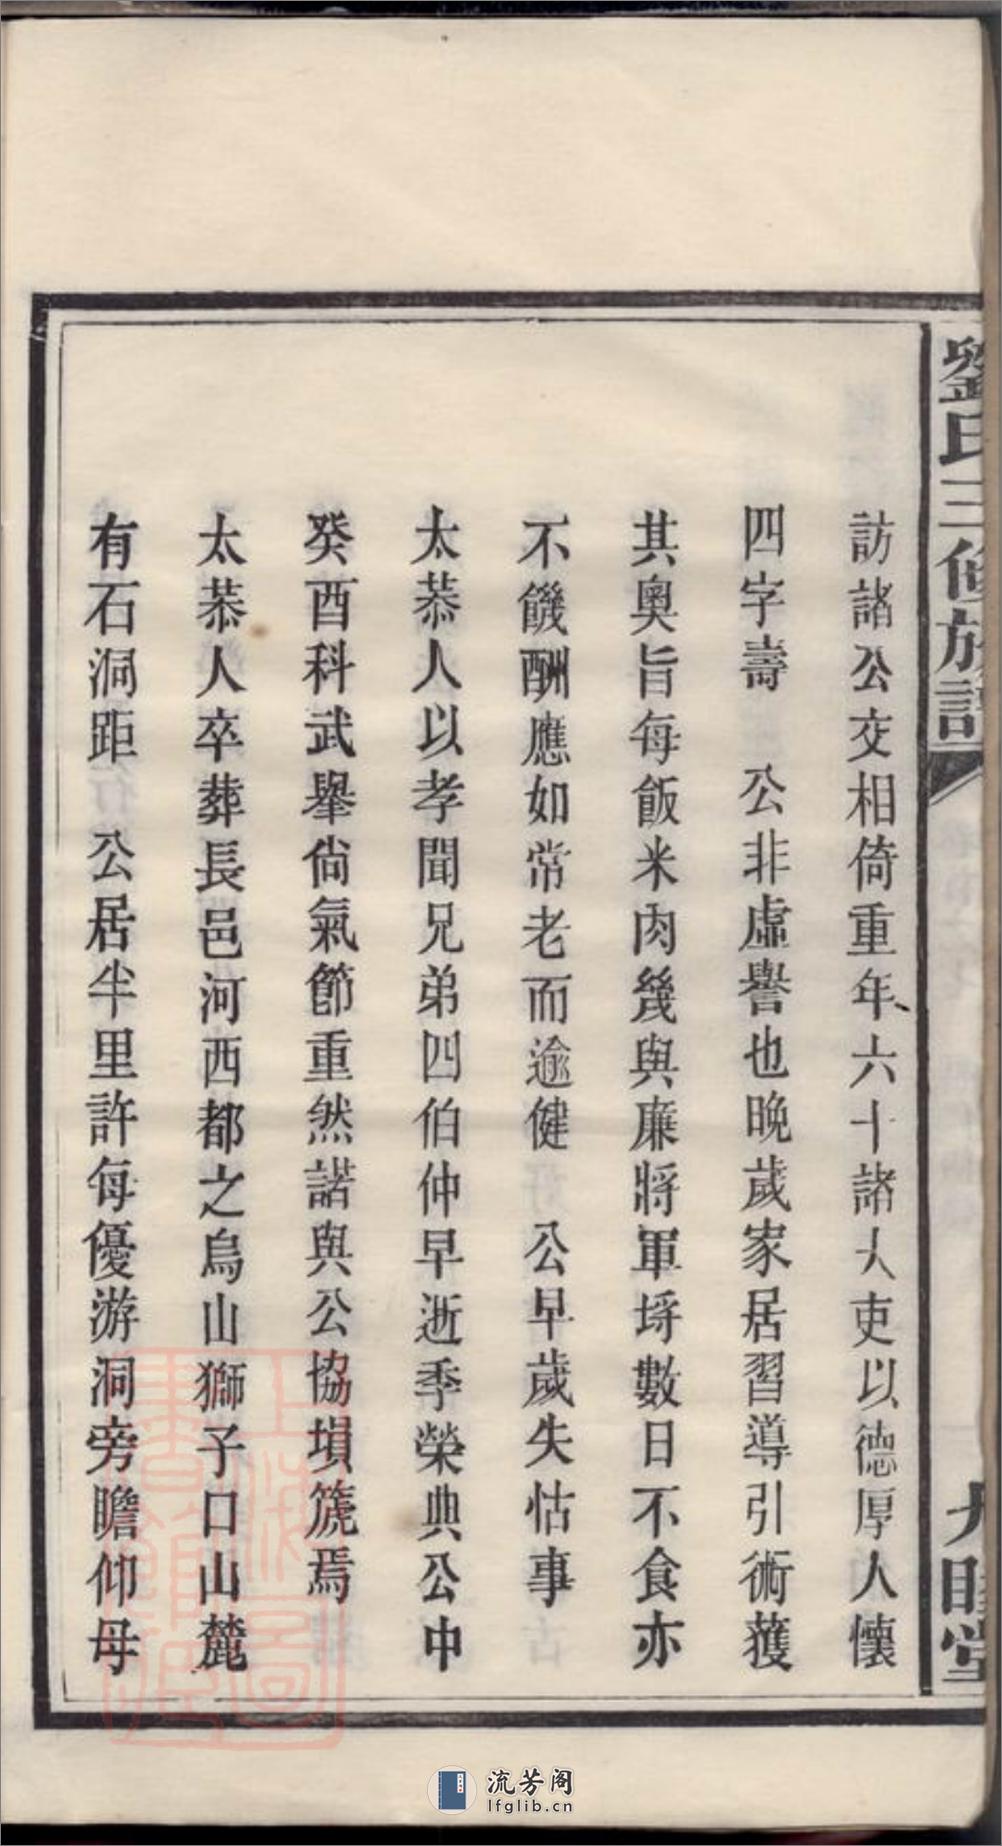 劉氏三修族譜
九睦堂
訪諸公交相倚重年六十諸人吏以德厚人懷
四字壽　公非虛譽也晚歲家居習導引術獲
其奧旨每飯米肉幾與廉將軍埒數日不食亦
不饑酬應如常老而逾健　公早歲失怙事
太恭人以孝聞兄弟四伯仲早逝季榮典公中
癸酉科武舉尙氣節重然諾與公協塤篪焉
太恭人卒葬長邑河西都之烏山獅子口山麓
有石洞距　公居半里許每優游洞旁瞻仰母
上海圖書館藏
流芳阁
lfglib.cn